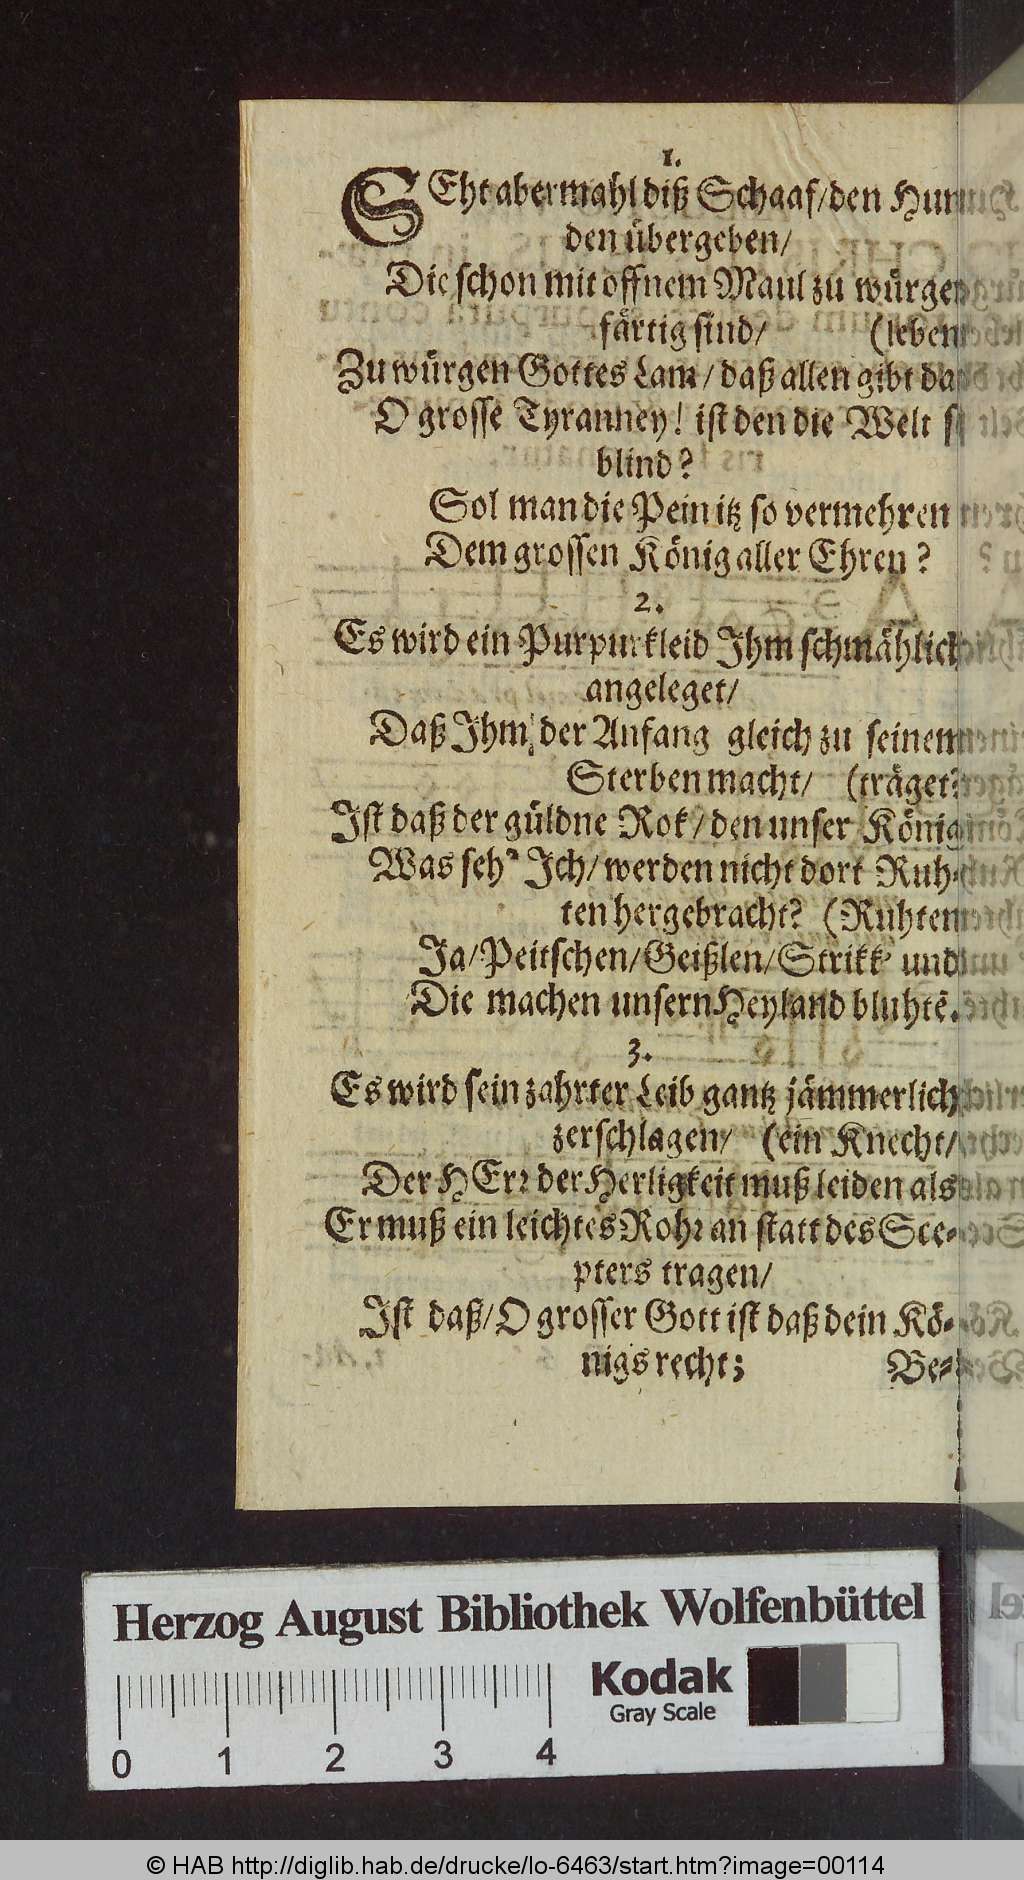 1.
SEht abermahl diß Schaaf/den Hun
den übergeben/
Die schon mit offnem Maul zu würgen
färtig sind/ (leben
Zu würgen Gottes Lam/daß allen gibt das
O grosse Tyranney! ist den die Welt so
blind?
Sol man die Pein itz so vermehren
Dem grossen König aller Ehren?
2.
Es wird ein Purpurkleid Ihm schmählich
angeleget/
Daß Ihm der Anfang gleich zu seinem
Sterben macht/ (träget?
Ist daß der güldne Rok/den unser König
Was seh' Ich/werden nicht dort Ruh-
ten hergebracht? (Ruhten
Ja/Peitschen/Geißlen/Strikk' und
Die machen unsern Heyland bluhtē.
3.
Es wird sein zahrter Leib gantz jämmerlich
zerschlagen/ (ein Knecht/
Der HErr der Herligkeit muß leiden als
Er muß ein leichtes Rohr an statt des Sce-
pters tragen/
Ist daß/O grosser Gott ist daß dein Kö-
nigs recht; Be-
Herzog August Bibliothek Wolfenbüttel
Kodak
Gray Scale
0 1 2 3 4
© HAB http://diglib.hab.de/drucke/lo-6463/start.htm?image=00114